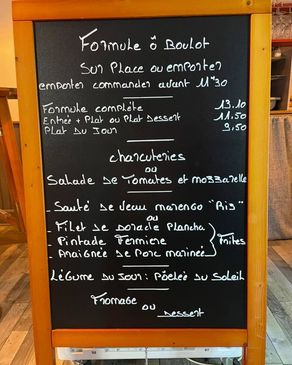 Formule ô Boulot
Sur Place ou emporter
emporter commander avant 11h30
Formule complète 13,10
Entrée + Plat ou Plat Dessert 11,50
Plat du Jour 9,50
charcuteries
ou
Salade de Tomates et mozzarelle
- Sauté de Veau marengo "Ris"
ou
- Filet de Dorade Plancha
- Pintade Fermiere } Frites
- Araignée de Porc marinée
Légume du Jour : Poêlée du Soleil
Fromage
ou Dessert